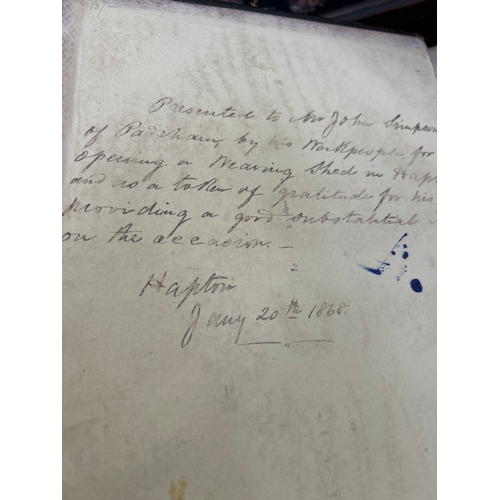 15/-
Presented to Mr John Simpson
of Padiham, by his Workpeople, for
opening a Weaving Shed in Hap
and as a token of gratitude for his
providing a good substantial
on the occasion.—
Hapton
Jany 20th 1868.